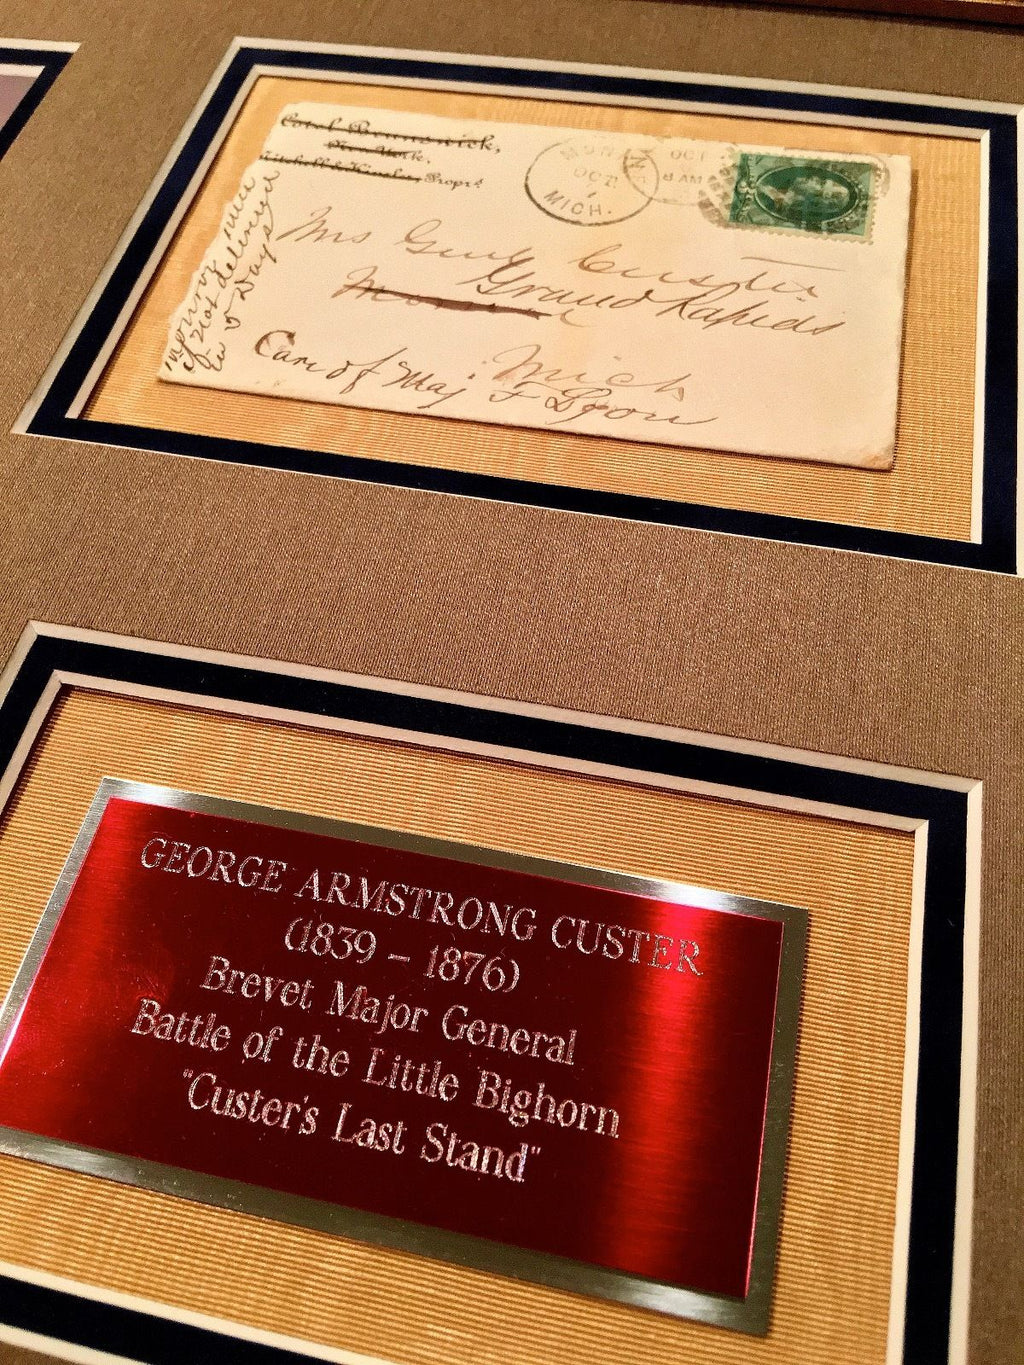 Hotel Brunswick,
New York.
Mitchell & Kinzler, Propr's
MON
OCT
MICH.
OCT
8 AM
Mrs Genl Custer
Grand Rapids
Mich
Care of Maj F Lyon
if not delivered
in 5 Days
GEORGE ARMSTRONG CUSTER
(1839 – 1876)
Brevet Major General
Battle of the Little Bighorn
"Custer's Last Stand"